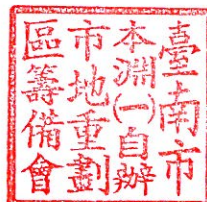 臺南市
本淵(一)自辦
市地重劃
區籌備會